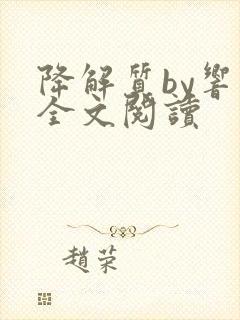 降解质by響
全文閱讀
趙荣